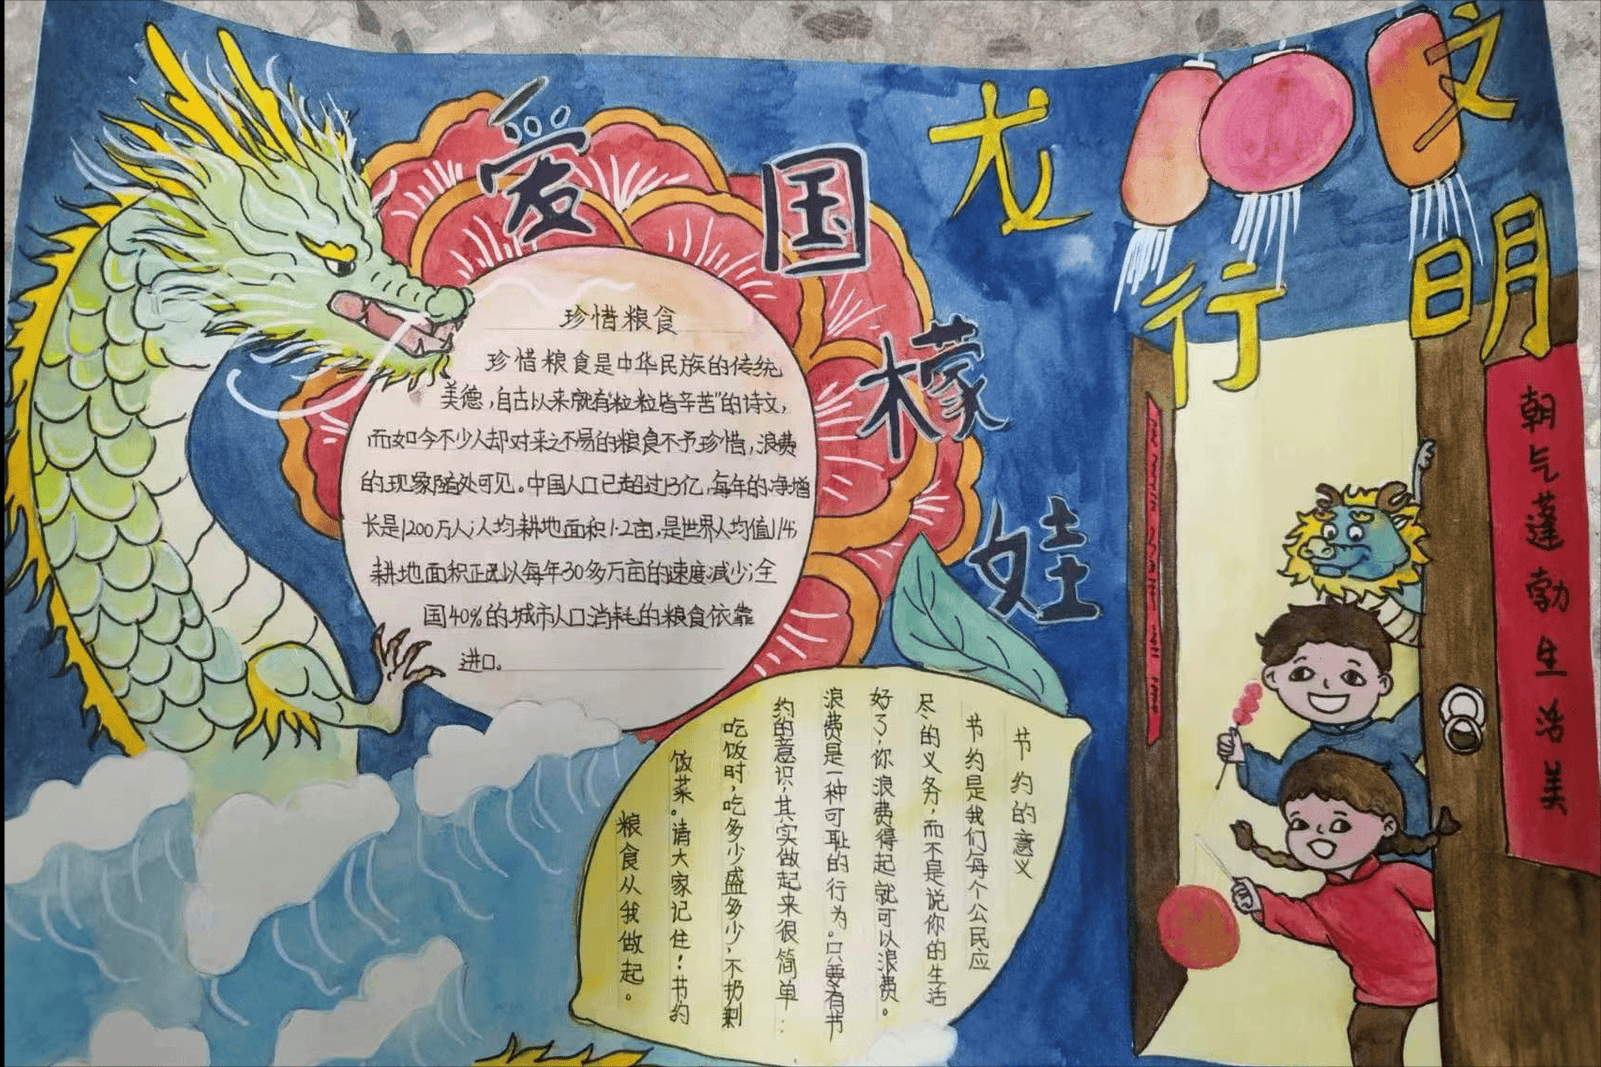 爱国檬娃
龙行
文明
珍惜粮食
珍惜粮食是中华民族的传统
美德,自古以来就有“粒粒皆辛苦”的诗文,
而如今不少人却对来之不易的粮食不予珍惜,浪费
的现象随处可见。中国人口已超过13亿,每年的净增
长是1200万人;人均耕地面积1.2亩,是世界人均值1/45
耕地面积正以每年30多万亩的速度减少;全
国40%的城市人口消耗的粮食依靠
进口。
节约的意义
节约是我们每个公民应
尽的义务,而不是说你的生活
好了,你浪费得起就可以浪费。
浪费是一种可耻的行为。只要有节
约的意识,其实做起来很简单:
吃饭时,吃多少盛多少,不扔剩
饭菜。请大家记住!节约
粮食从我做起。
朝气蓬勃生活美